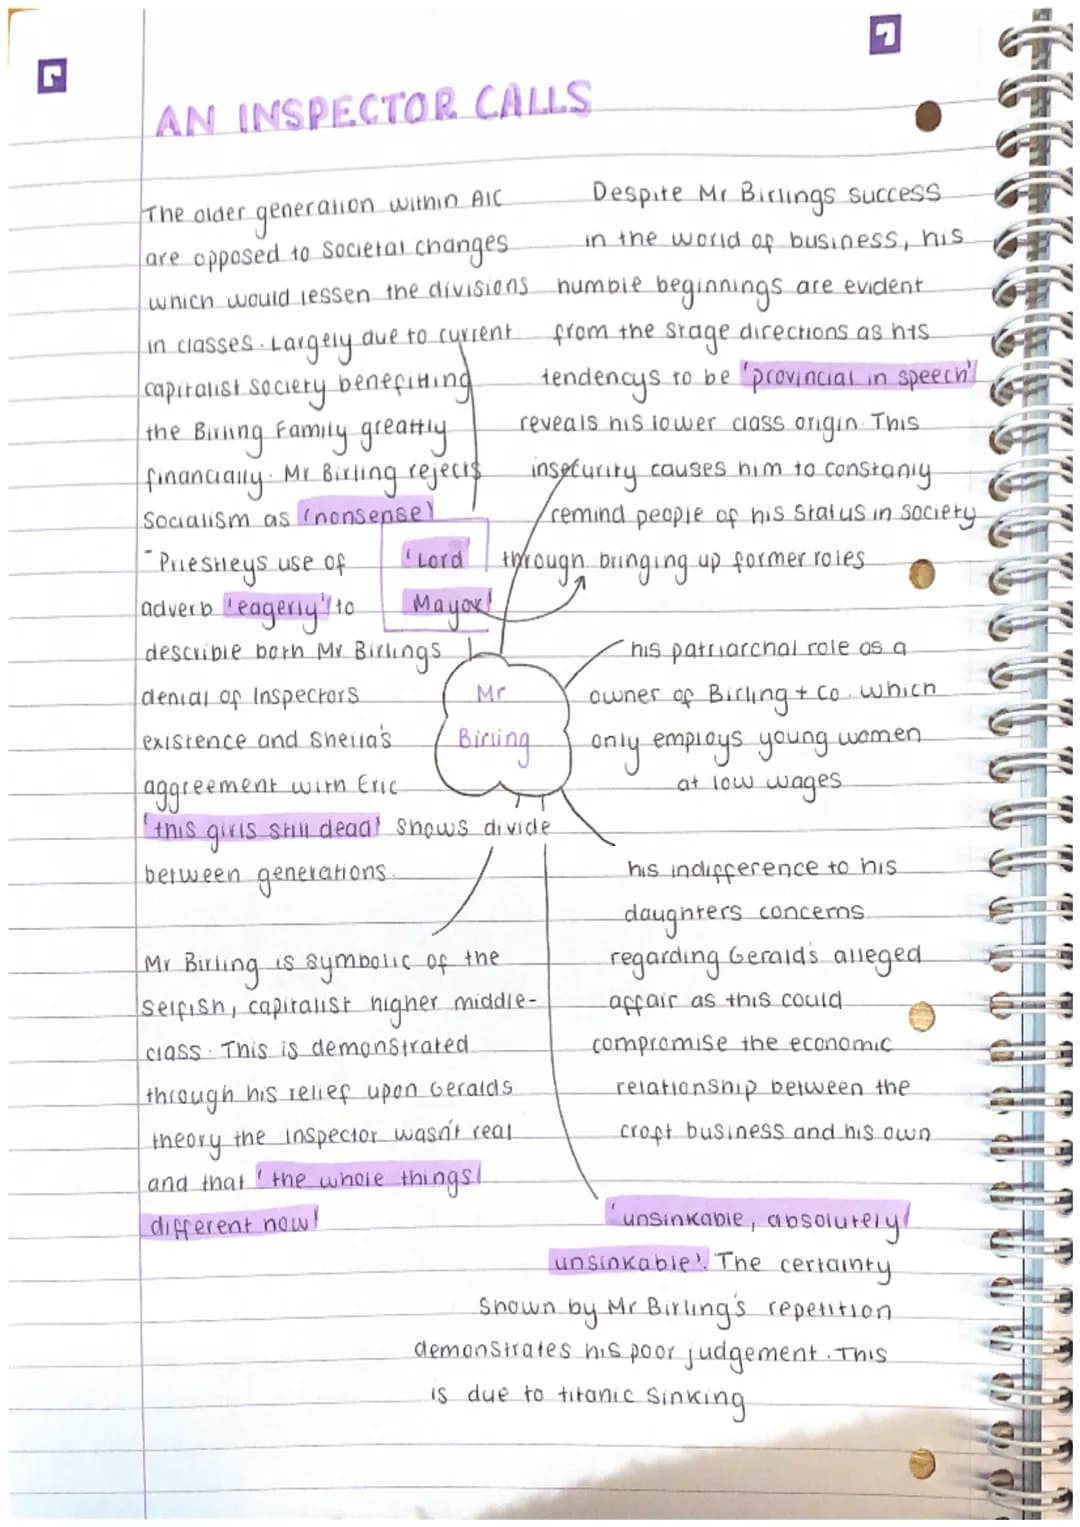 AN INSPECTOR CALLS
The older generation within AIC
are opposed to societal changes
which would lessen the divisions
in classes. Largely due to current
capitalist society benefitting
the Birling Family greattly
financially. Mr Birling rejects
Socialism as 'nonsense'
- Priestleys use of
adverb 'eagerly' to
describle both Mr Birlings
denial of Inspectors
existence and Sheila's
aggreement with Eric
'this girls still dead' shows divide
between generations.
'Lord
Mayor'
Despite Mr Birlings success
in the world of business, his
humble beginnings are evident
from the stage directions as his
tendencys to be 'provincial in speech'
reveals his lower class origin. This
insecurity causes him to constanly
remind people of his status in society
through bringing up former roles
Mr
Birling
his patriarchal role as a
owner of Birling + Co. which
only employs young women
at low wages
his indifference to his
daughters concerns
regarding Gerald's alleged
affair as this could
compromise the economic
relationship between the
croft business and his own
Mr Birling is symbolic of the
selfish, capitalist higher middle-
class. This is demonstrated
through his relief upon Geralds
theory the inspector wasn't real
and that 'the whole things
different now'
'unsinkable, absolutely
unsinkable'. The certainty
shown by Mr Birling's repetition
demonstrates his poor judgement. This
is due to titanic sinking